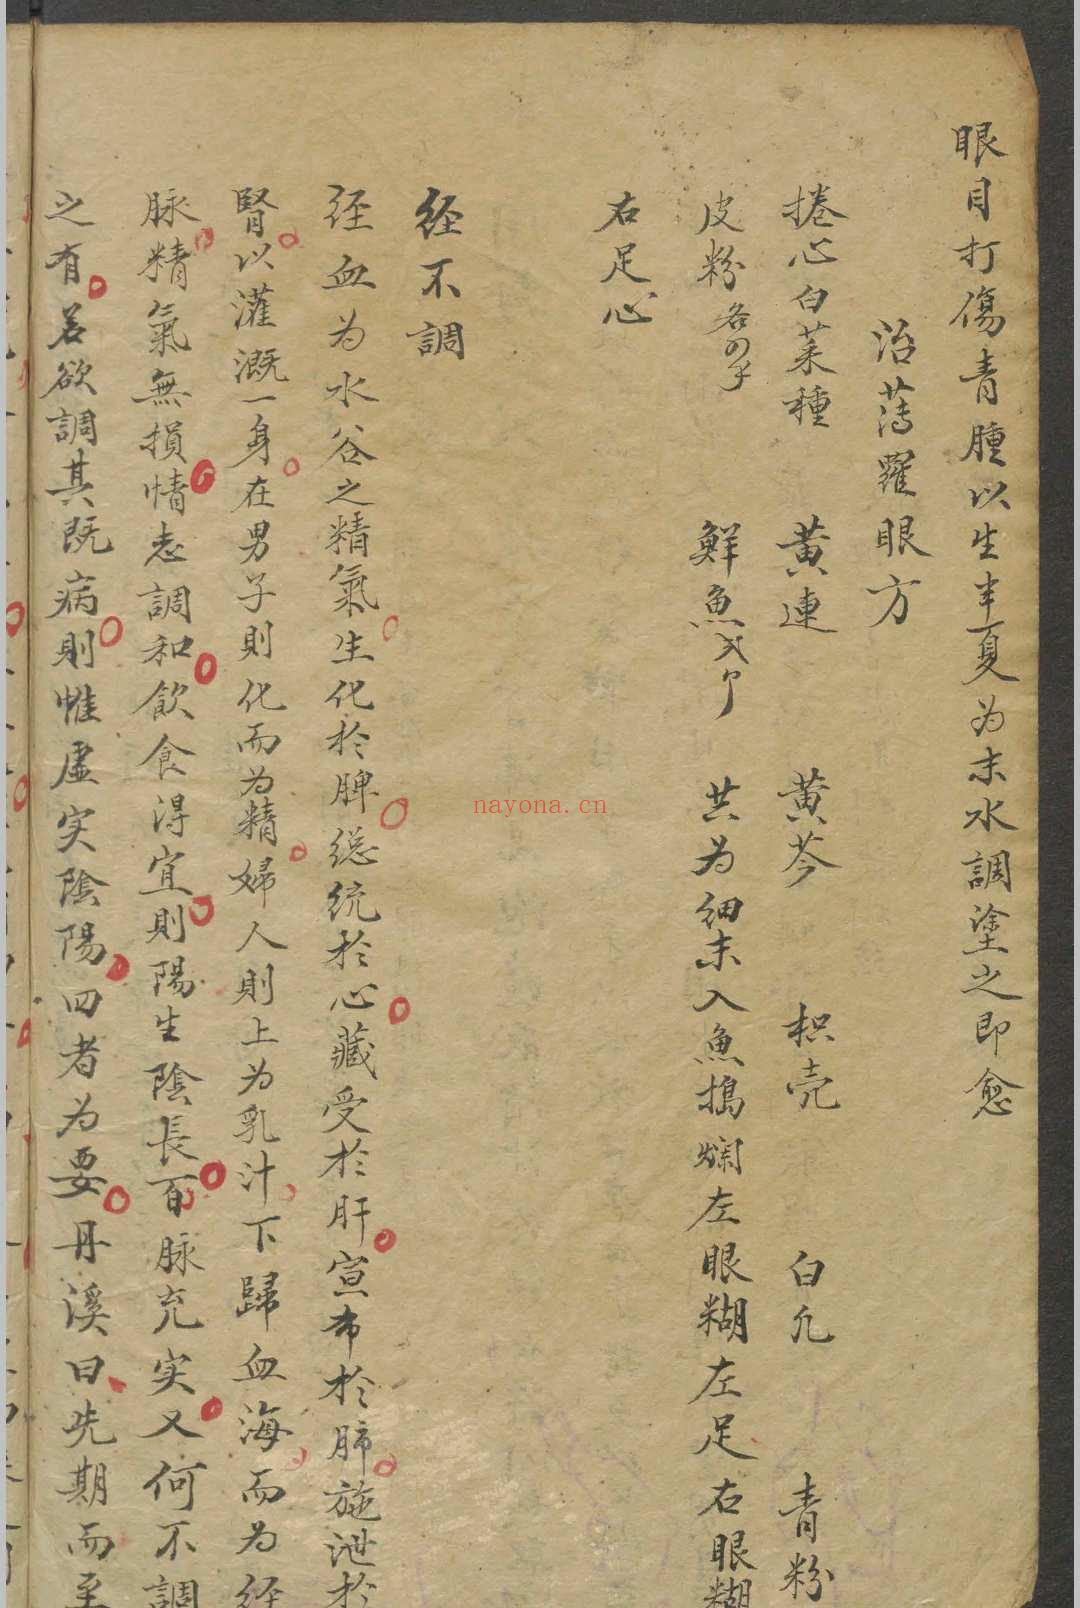 眼目打傷青腫以生半夏为末水調塗之即愈
治薄羅眼方
捲心白菜種 黃連 黃芩 枳壳 白凣 青粉
皮粉各 鮮魚 共为细末入魚搗爛左眼糊左足右眼糊
右足心
経不調
経血为水谷之精氣生化於脾総统於心藏受於肝宣布於肺施泄於
腎以灌溉一身在男子則化而为精婦人則上为乳汁下歸血海而为経
脉精氣無損情志調和飲食得宜則陽生陰長百脉充实又何不調
之有若欲調其既病則惟虛实陰陽四者为要丹溪曰先期而至
nayona.cn